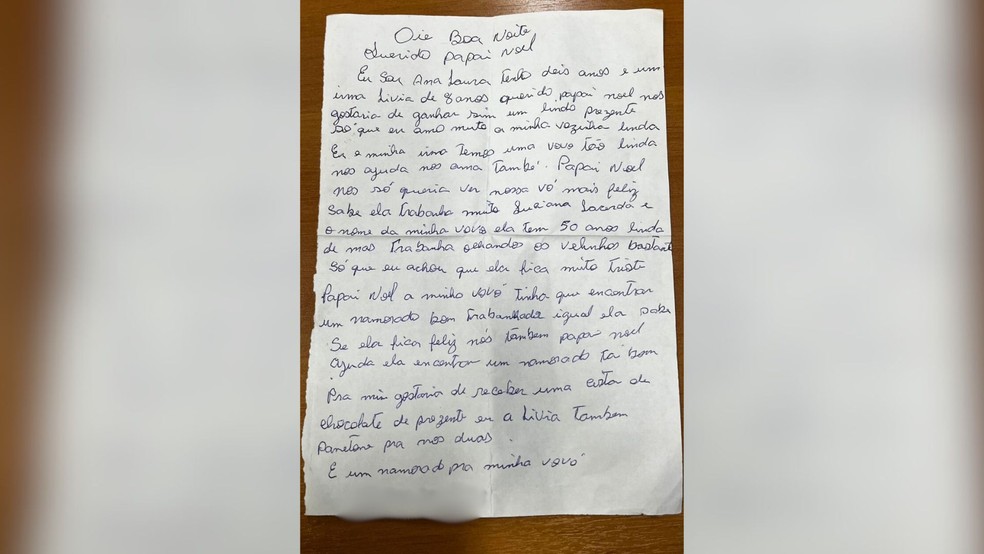 Oie Boa Noite
Querido Papai Noel
Eu Sou Ana Laura tenho deis anos e um
irma Livia de 8 anos querido papai noel nos
gostaria de ganhar sim um lindo prezente
só que eu amo muito a minha vozinha linda
Eu e minha irma temos uma vovo tão linda
nos ajuda nos ama també. Papai Noel
nos só queria ver nossa vó mais feliz
Sabe ela trabanha muito Luciana Lacerda e
o nome da minha vovo ela tem 50 anos linda
de mas trabanha olhandos os velinhos bastante
Só que eu achou que ela fica muito triste
Papai Noel a minha vovó tinha que encontrar
um namorado bom trabanhador igual ela sabe
Se ela fica feliz nós tambem papai noel
ajuda ela encontrar um namorado ta bom
Pra min gostaria de receber uma cesta de
chocolate de prezente eu a Livia Tambem
Panetone pra nos duas.
E um namorado pra minha vovó